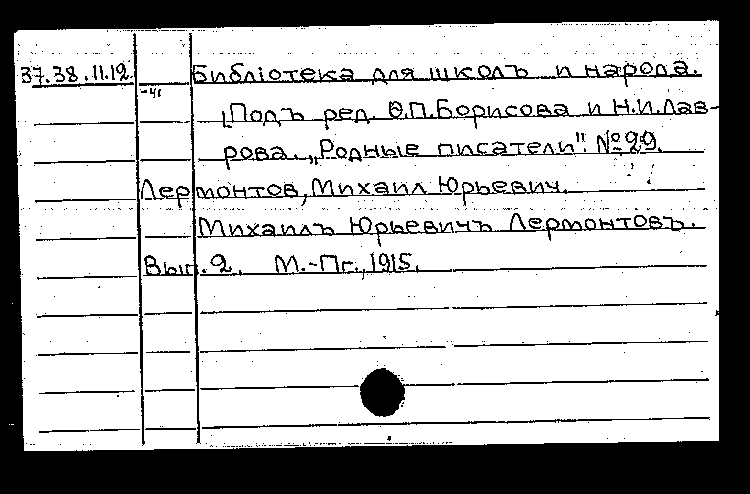 37.38.11.12 Библіотека для школъ и народа.
[Подъ ред. Ѳ.П.Борисова и Н.И.Лав-
рова. „Родные писатели". №29.
Лермонтов, Михаил Юрьевич.
Михаилъ Юрьевичъ Лермонтовъ.
Вып.2. М.-Пг., 1915.